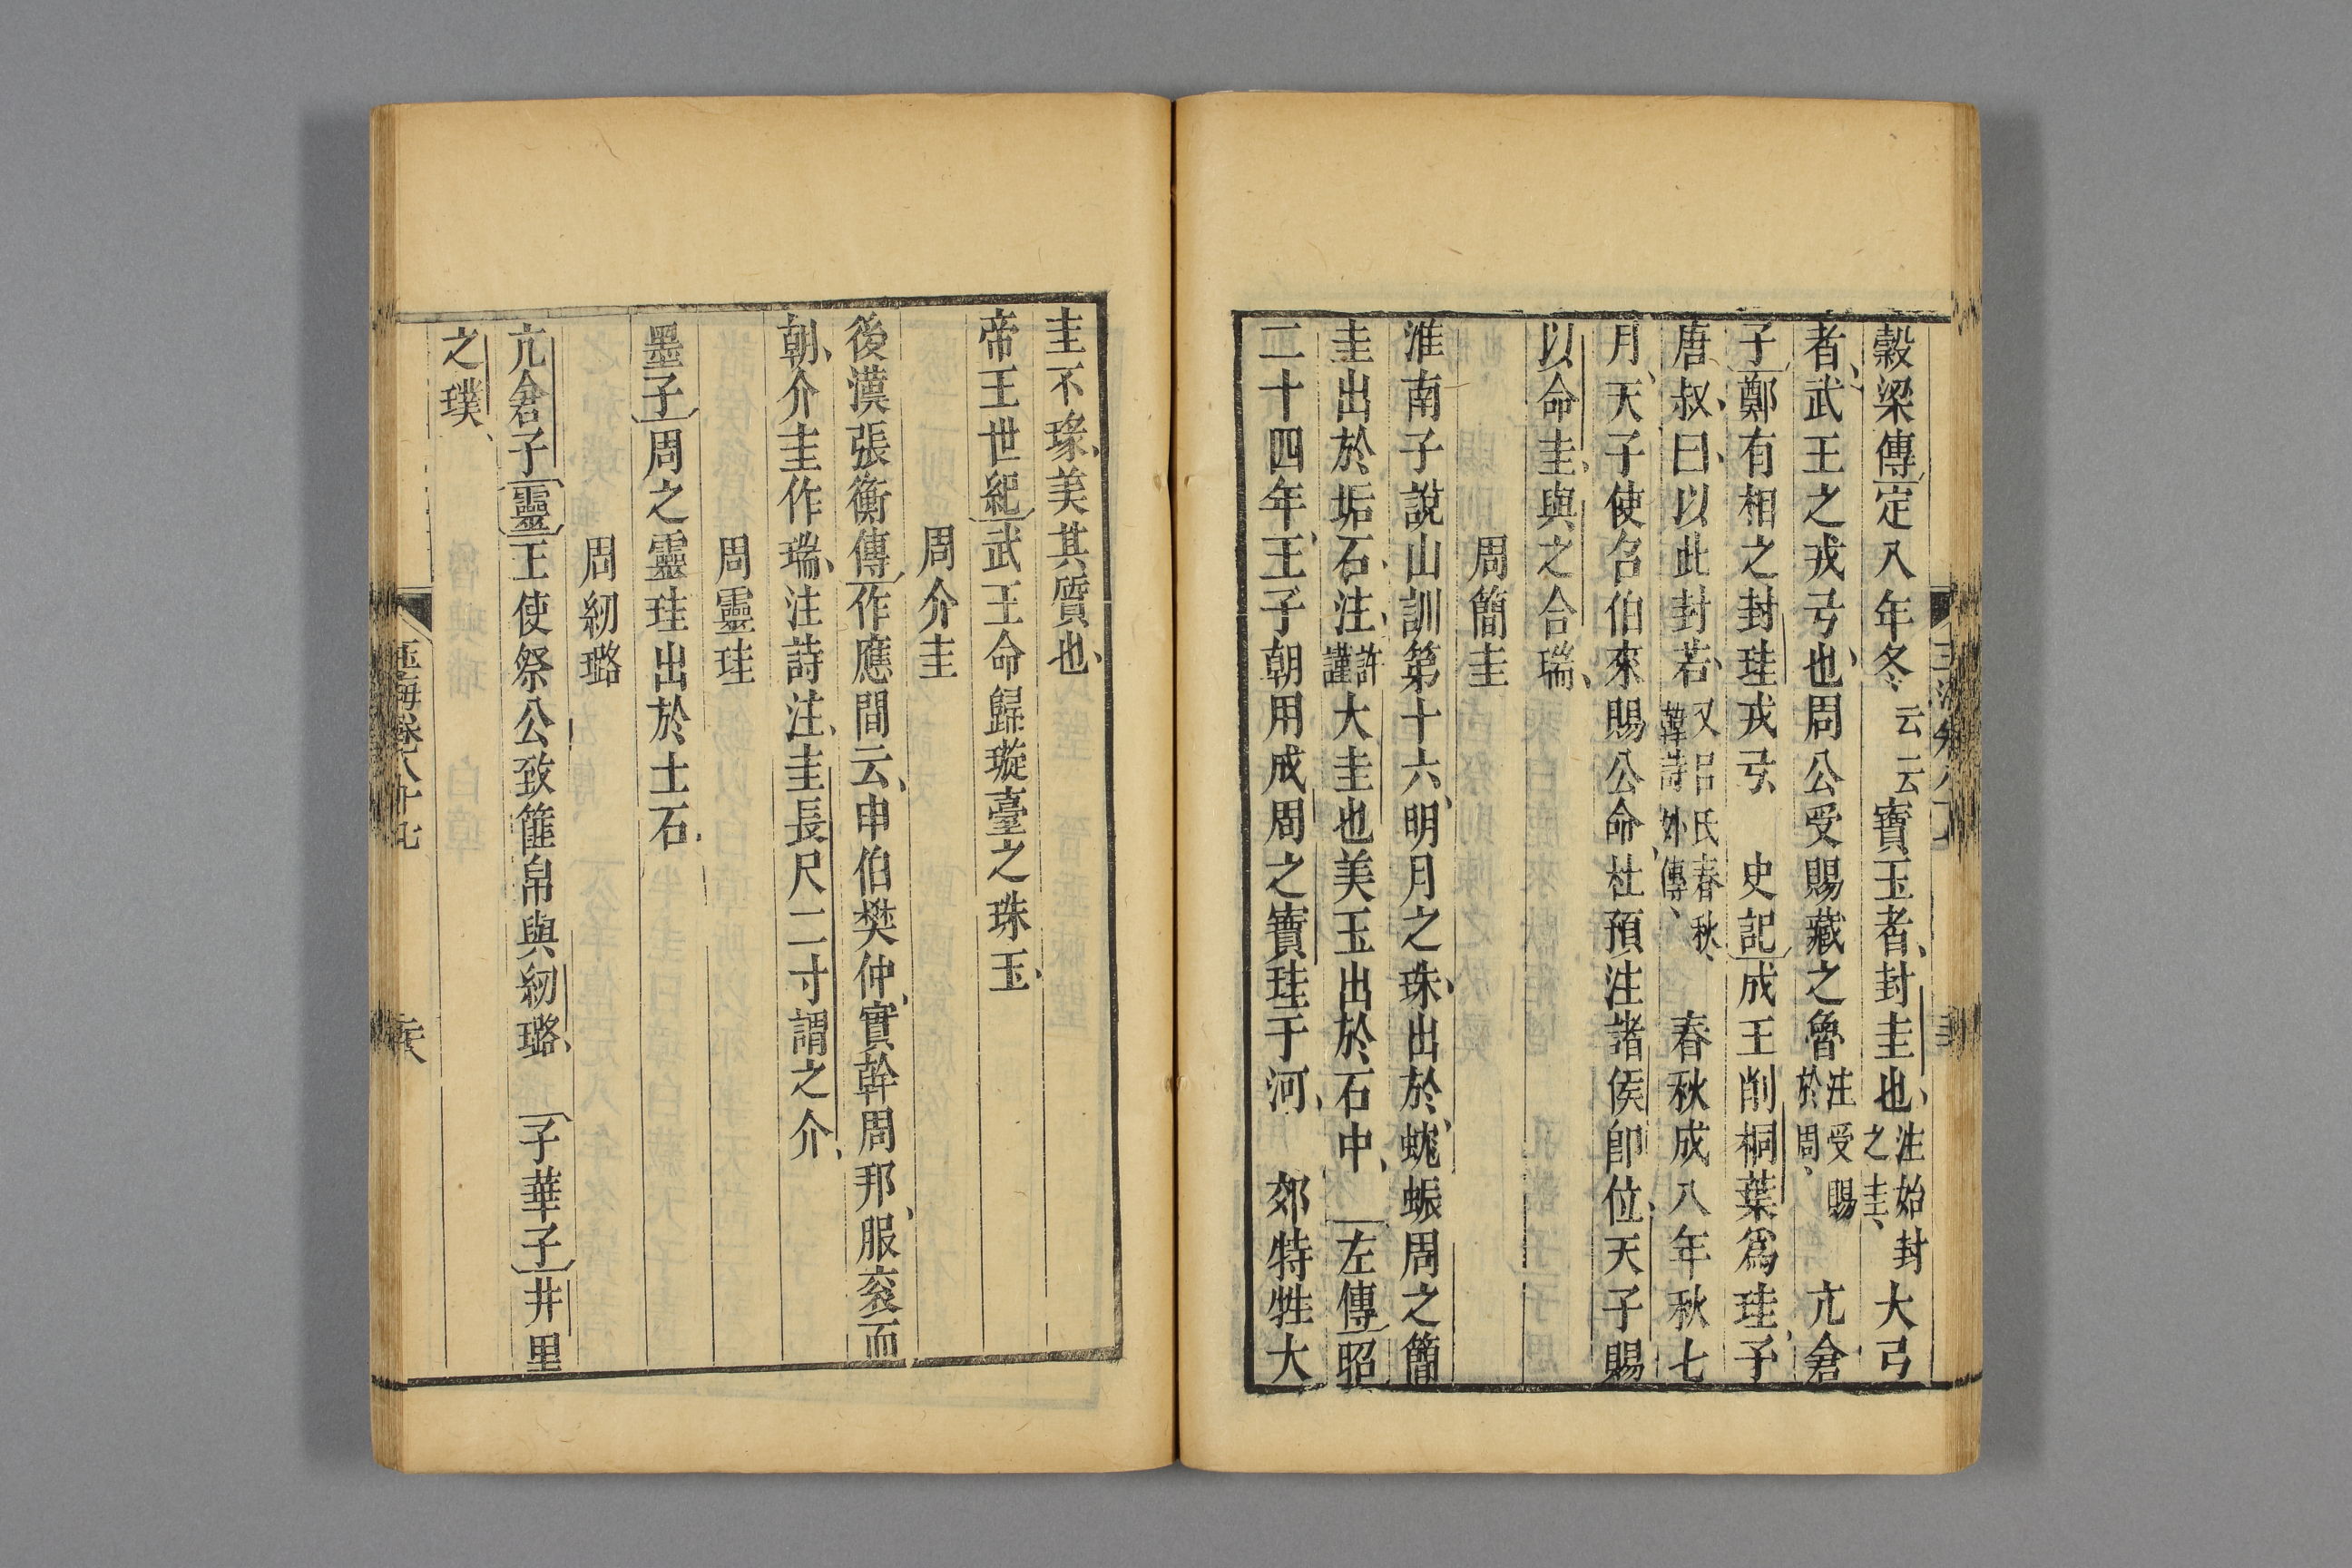 穀梁傳定八年冬云云寶玉者封圭也注始封之圭大弓
者武王之戎弓也周公受賜藏之魯注受賜於周亢倉
子鄭有相之封珪戎弓 史記成王削桐葉爲珪予
唐叔曰以此封若又呂氏春秋韓詩外傳 春秋成八年秋七
月天子使召伯來賜公命杜預注諸侯卽位天子賜
以命圭與之合瑞
周簡圭
淮南子說山訓第十六明月之珠出於蛖蜄周之簡
圭出於垢石注許謹大圭也美玉出於石中 左傳昭
二十四年王子朝用成周之寶珪于河 郊特牲大
圭不瑑美其質也
帝王世紀武王命歸璇臺之珠玉
周介圭
後漢張衡傳作應間云申伯樊仲實幹周邦服衮而
朝介圭作瑞注詩注圭長尺二寸謂之介
周靈珪
墨子周之靈珪出於土石
周紉璐
亢倉子靈王使祭公致篚帛與紉璐 子華子井里
之璞
玉海卷八十七